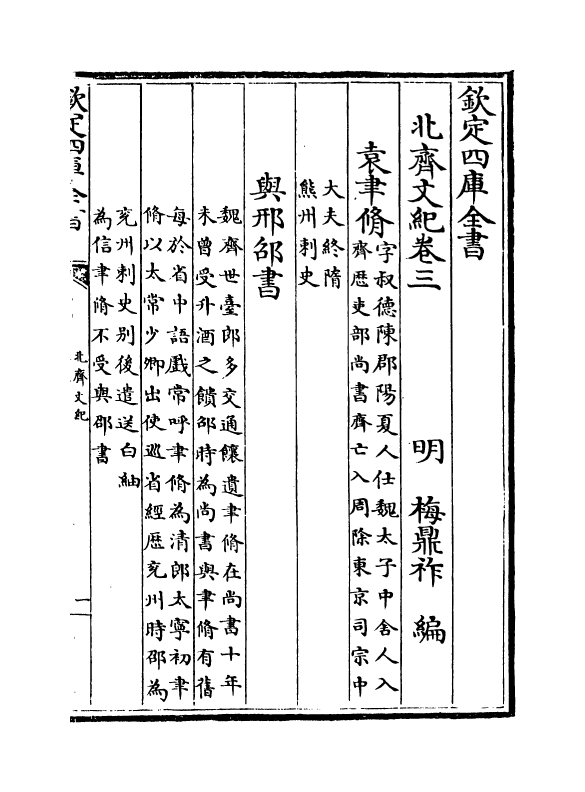 欽定四庫全書
北齊文紀卷三
明 梅鼎祚 編
袁聿脩字叔德陳郡陽夏人仕魏太子中舍人入
齊歷吏部尚書齊亡入周除東京司宗中
大夫終隋
熊州刺史
與邢邵書
魏齊世臺郎多交通饟遺聿脩在尚書十年
未曾受升酒之饋邵時為尚書與聿脩有舊
每於省中語戲常呼聿脩為清郎太寧初聿
脩以太常少卿出使巡省經歷兖州時邵為
兖州刺史别後遣送白紬
為信聿脩不受與邵書
欽定四庫全書
北齊文紀
一